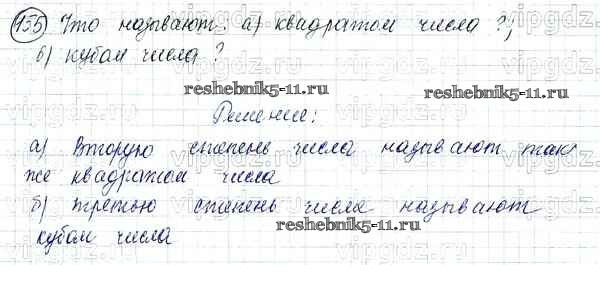 155) Что называют: а) квадратом числа?;
б) кубом числа?
reshebnik5-11.ru
reshebnik5-11.ru
Решение:
а) Вторую степень числа называют так
же квадратом числа
б) третью степень числа называют
reshebnik5-11.ru
кубом числа